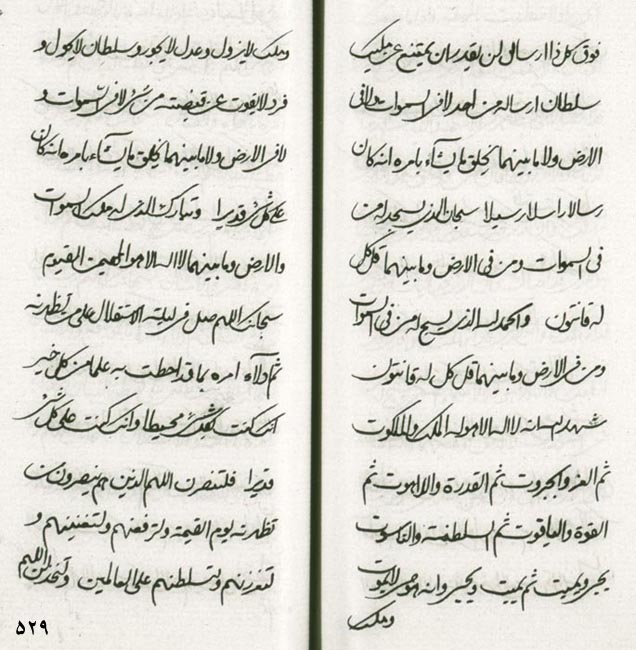 فوق کل ذا ارسال لن یقدر ان یمتنع عن ملیک
سلطان ارساله من احد لا فی السموات ولا فی
الارض ولا ما بینهما یخلق ما یشآء بامره انه کان
رسالا راسلا رسیلا سبحان الذی یسجد له من
فی السموات ومن فی الارض وما بینهما قل کل
له قانتون والحمد لله الذی یسبح له من فی السموات
ومن فی الارض وما بینهما قل کل له قانتون
شهد الله انه لا اله الا هو له الملک والملکوت
ثم العز والجبروت ثم القدرة واللاهوت ثم
القوة والیاقوت ثم السلطنة والناسوت
یحیی ویمیت ثم یمیت ویحیی وانه هو حی لایموت
وملک
وملک لایزول وعدل لایجور وسلطان لایحول و
فرد لایفوت عن قبضته من شئ لا فی السموات و
لا فی الارض ولا ما بینهما یخلق ما یشآء بامره انه کان
علی کل شئ قدیرا وتبارک الذی له ملک السموات
والارض وما بینهما لا اله الا هو المهیمن القیوم
سبحانک اللهم صل فی لیلة الاستقلال علی من تظهرنه
ثم ادلآء امره بما قد احطت به علما من کل خیر
انک کنت بکل شئ محیطا وانک کنت علی کل شئ
قدیرا فلتنصرن اللهم الذین هم ینصرون من
تظهرنه یوم القیمة ولترفعنهم ولتغنینهم و
لتعززنهم ولتسلطنهم علی العالمین ولتخذلن اللهم
۵۲۹